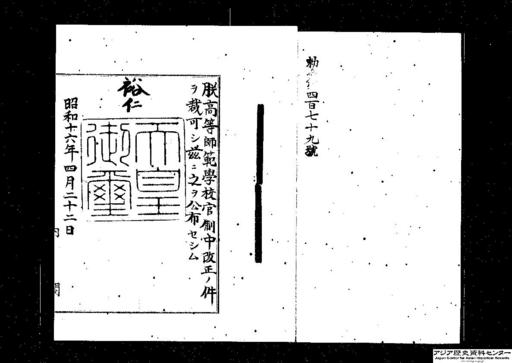 勅 四百七十九號
朕高等師範學校官制中改正ノ件
ヲ裁可シ茲ニ之ヲ公布セシム
裕仁
天皇
御璽
昭和十六年四月二十二日
内閣
アジア歴史資料センター
Japan Center for Asian Historical Records